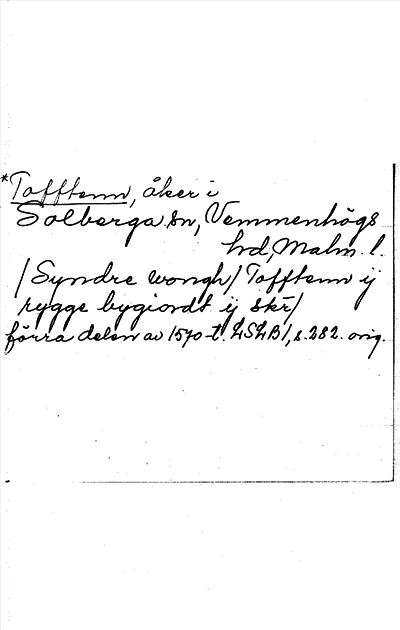 *Tofftenn, åker i
Solberga sn, Vemmenhögs
hd, Malm. l.
/Syndre wongh/ Tofftenn ij
rygge bygiordt ij skr̄/
förra delen av 1570-t. LSLB1, s. 282. orig.